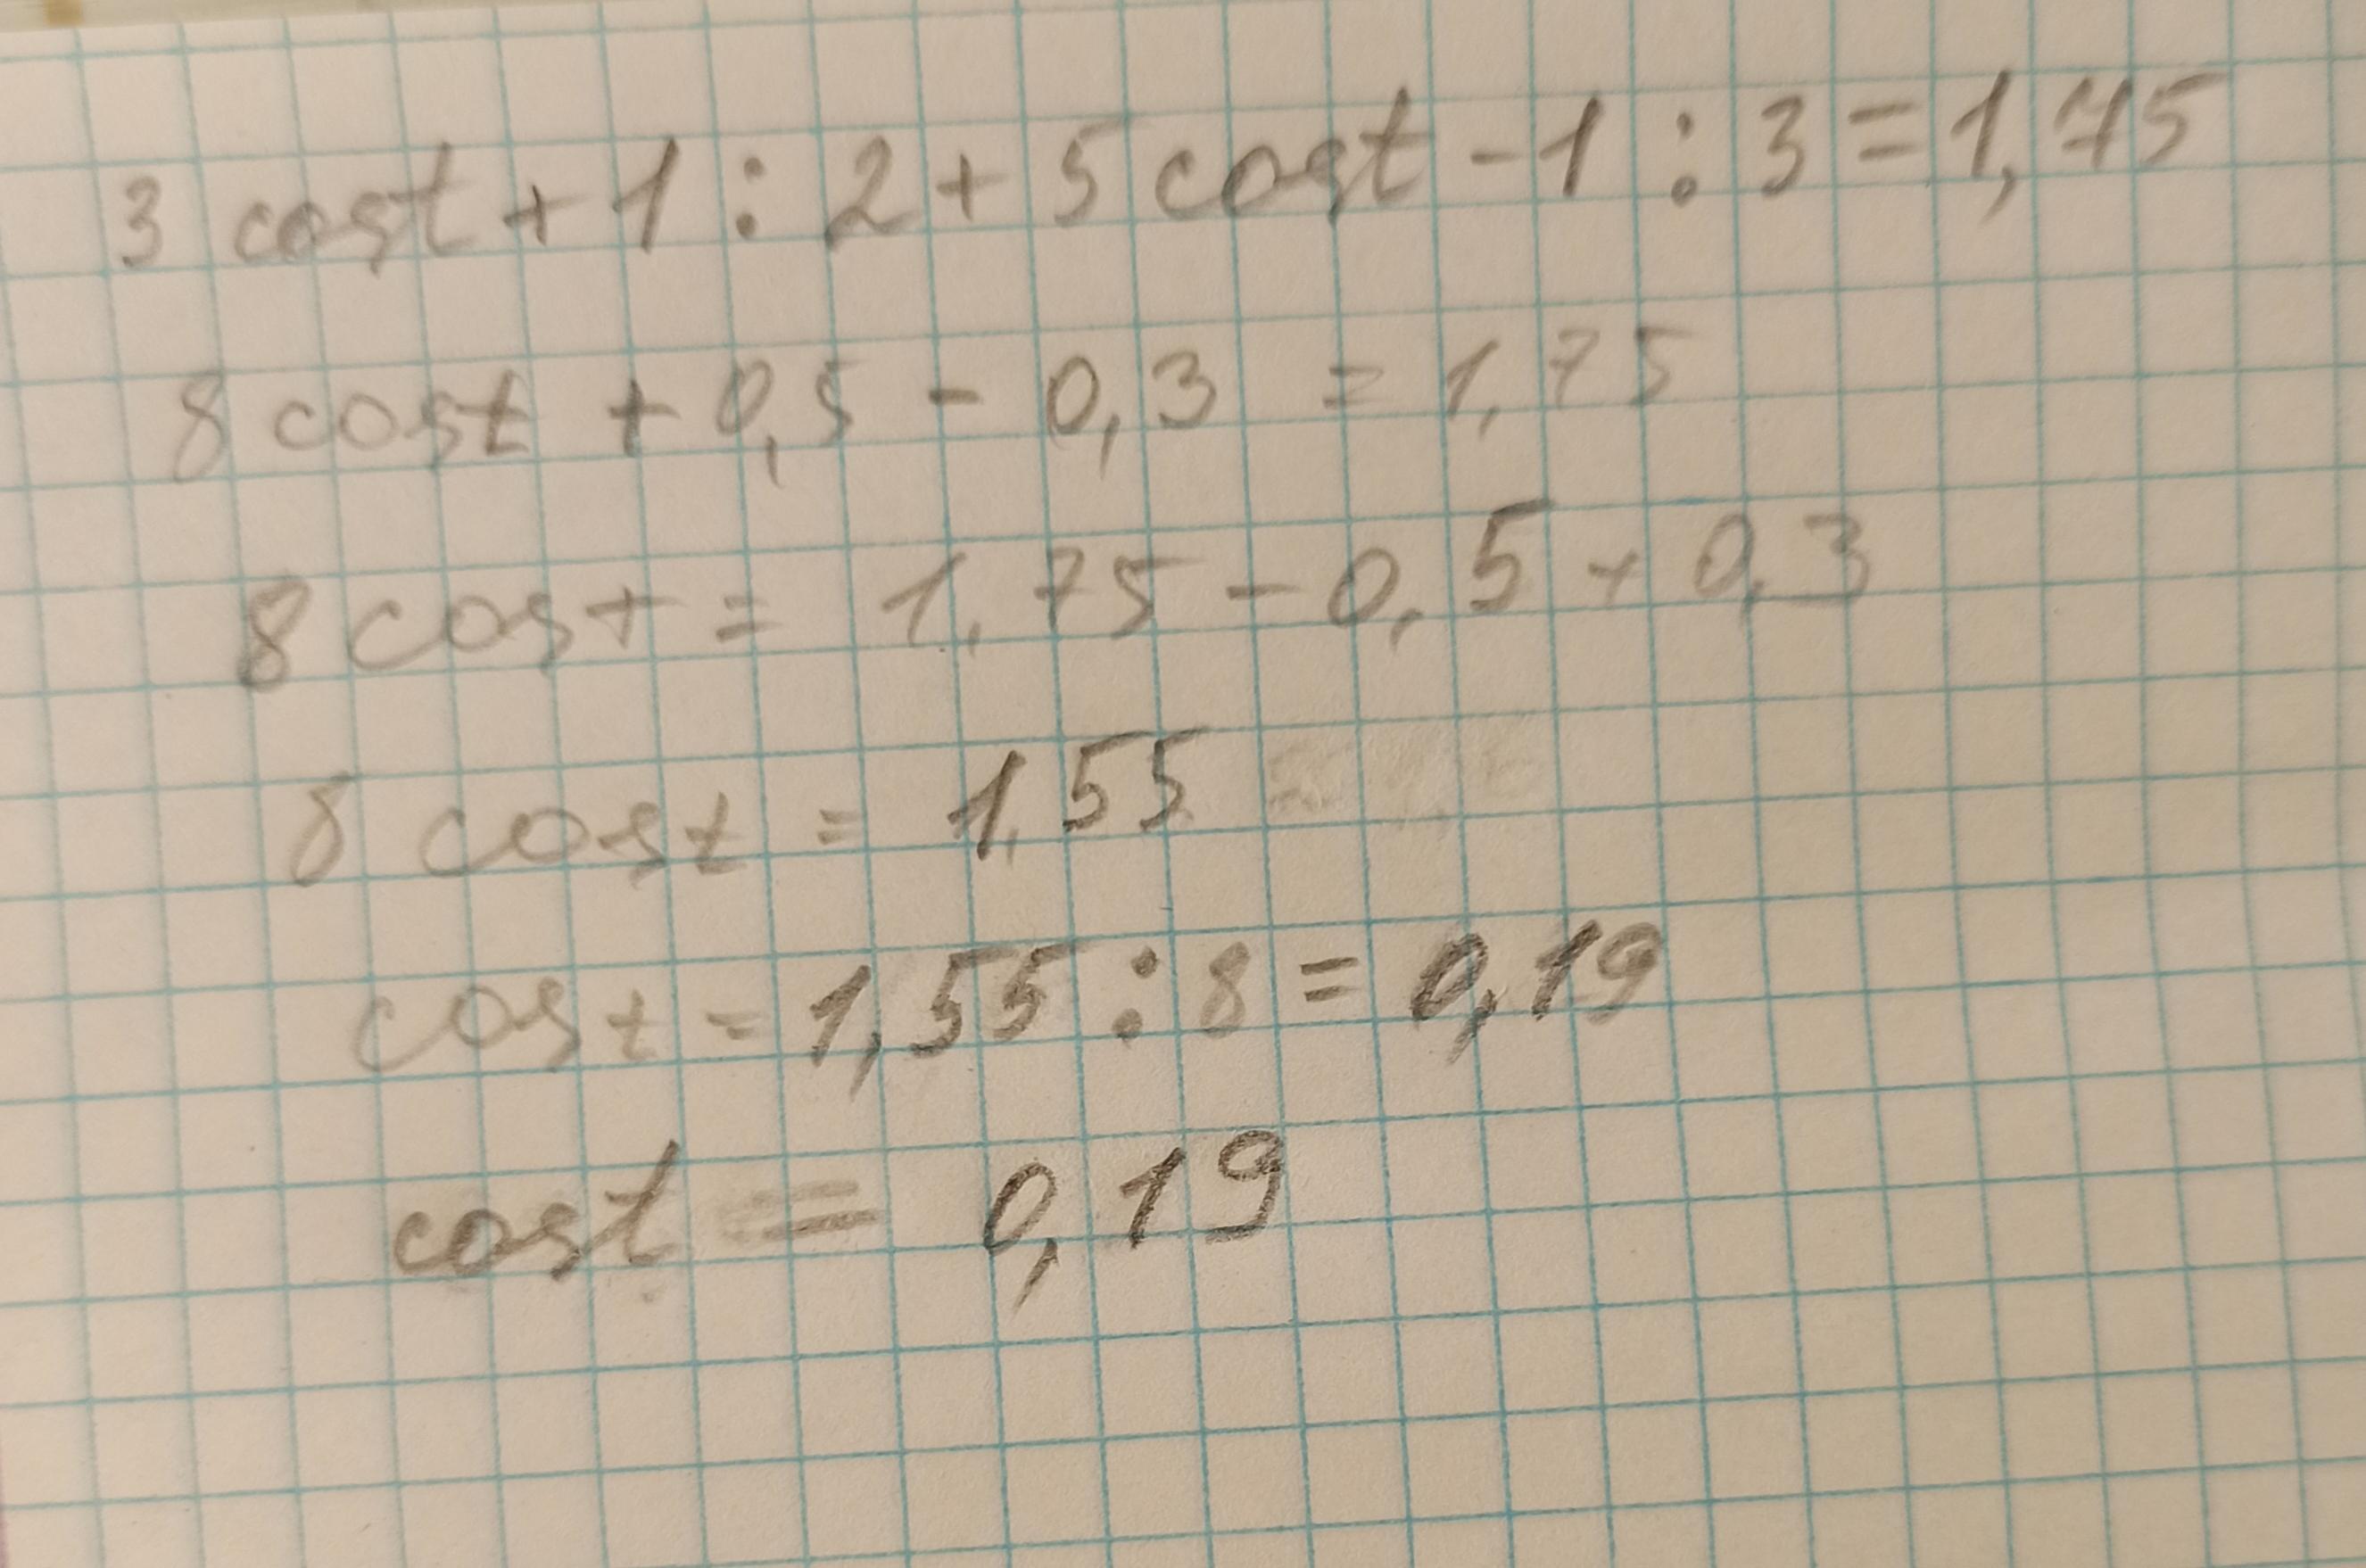 3 cost + 1 : 2 + 5 cost - 1 : 3 = 1,75
8 cost + 0,5 - 0,3 = 1,75
8 cost = 1,75 - 0,5 + 0,3
8 cost = 1,55
cost = 1,55 : 8 = 0,19
cost = 0,19